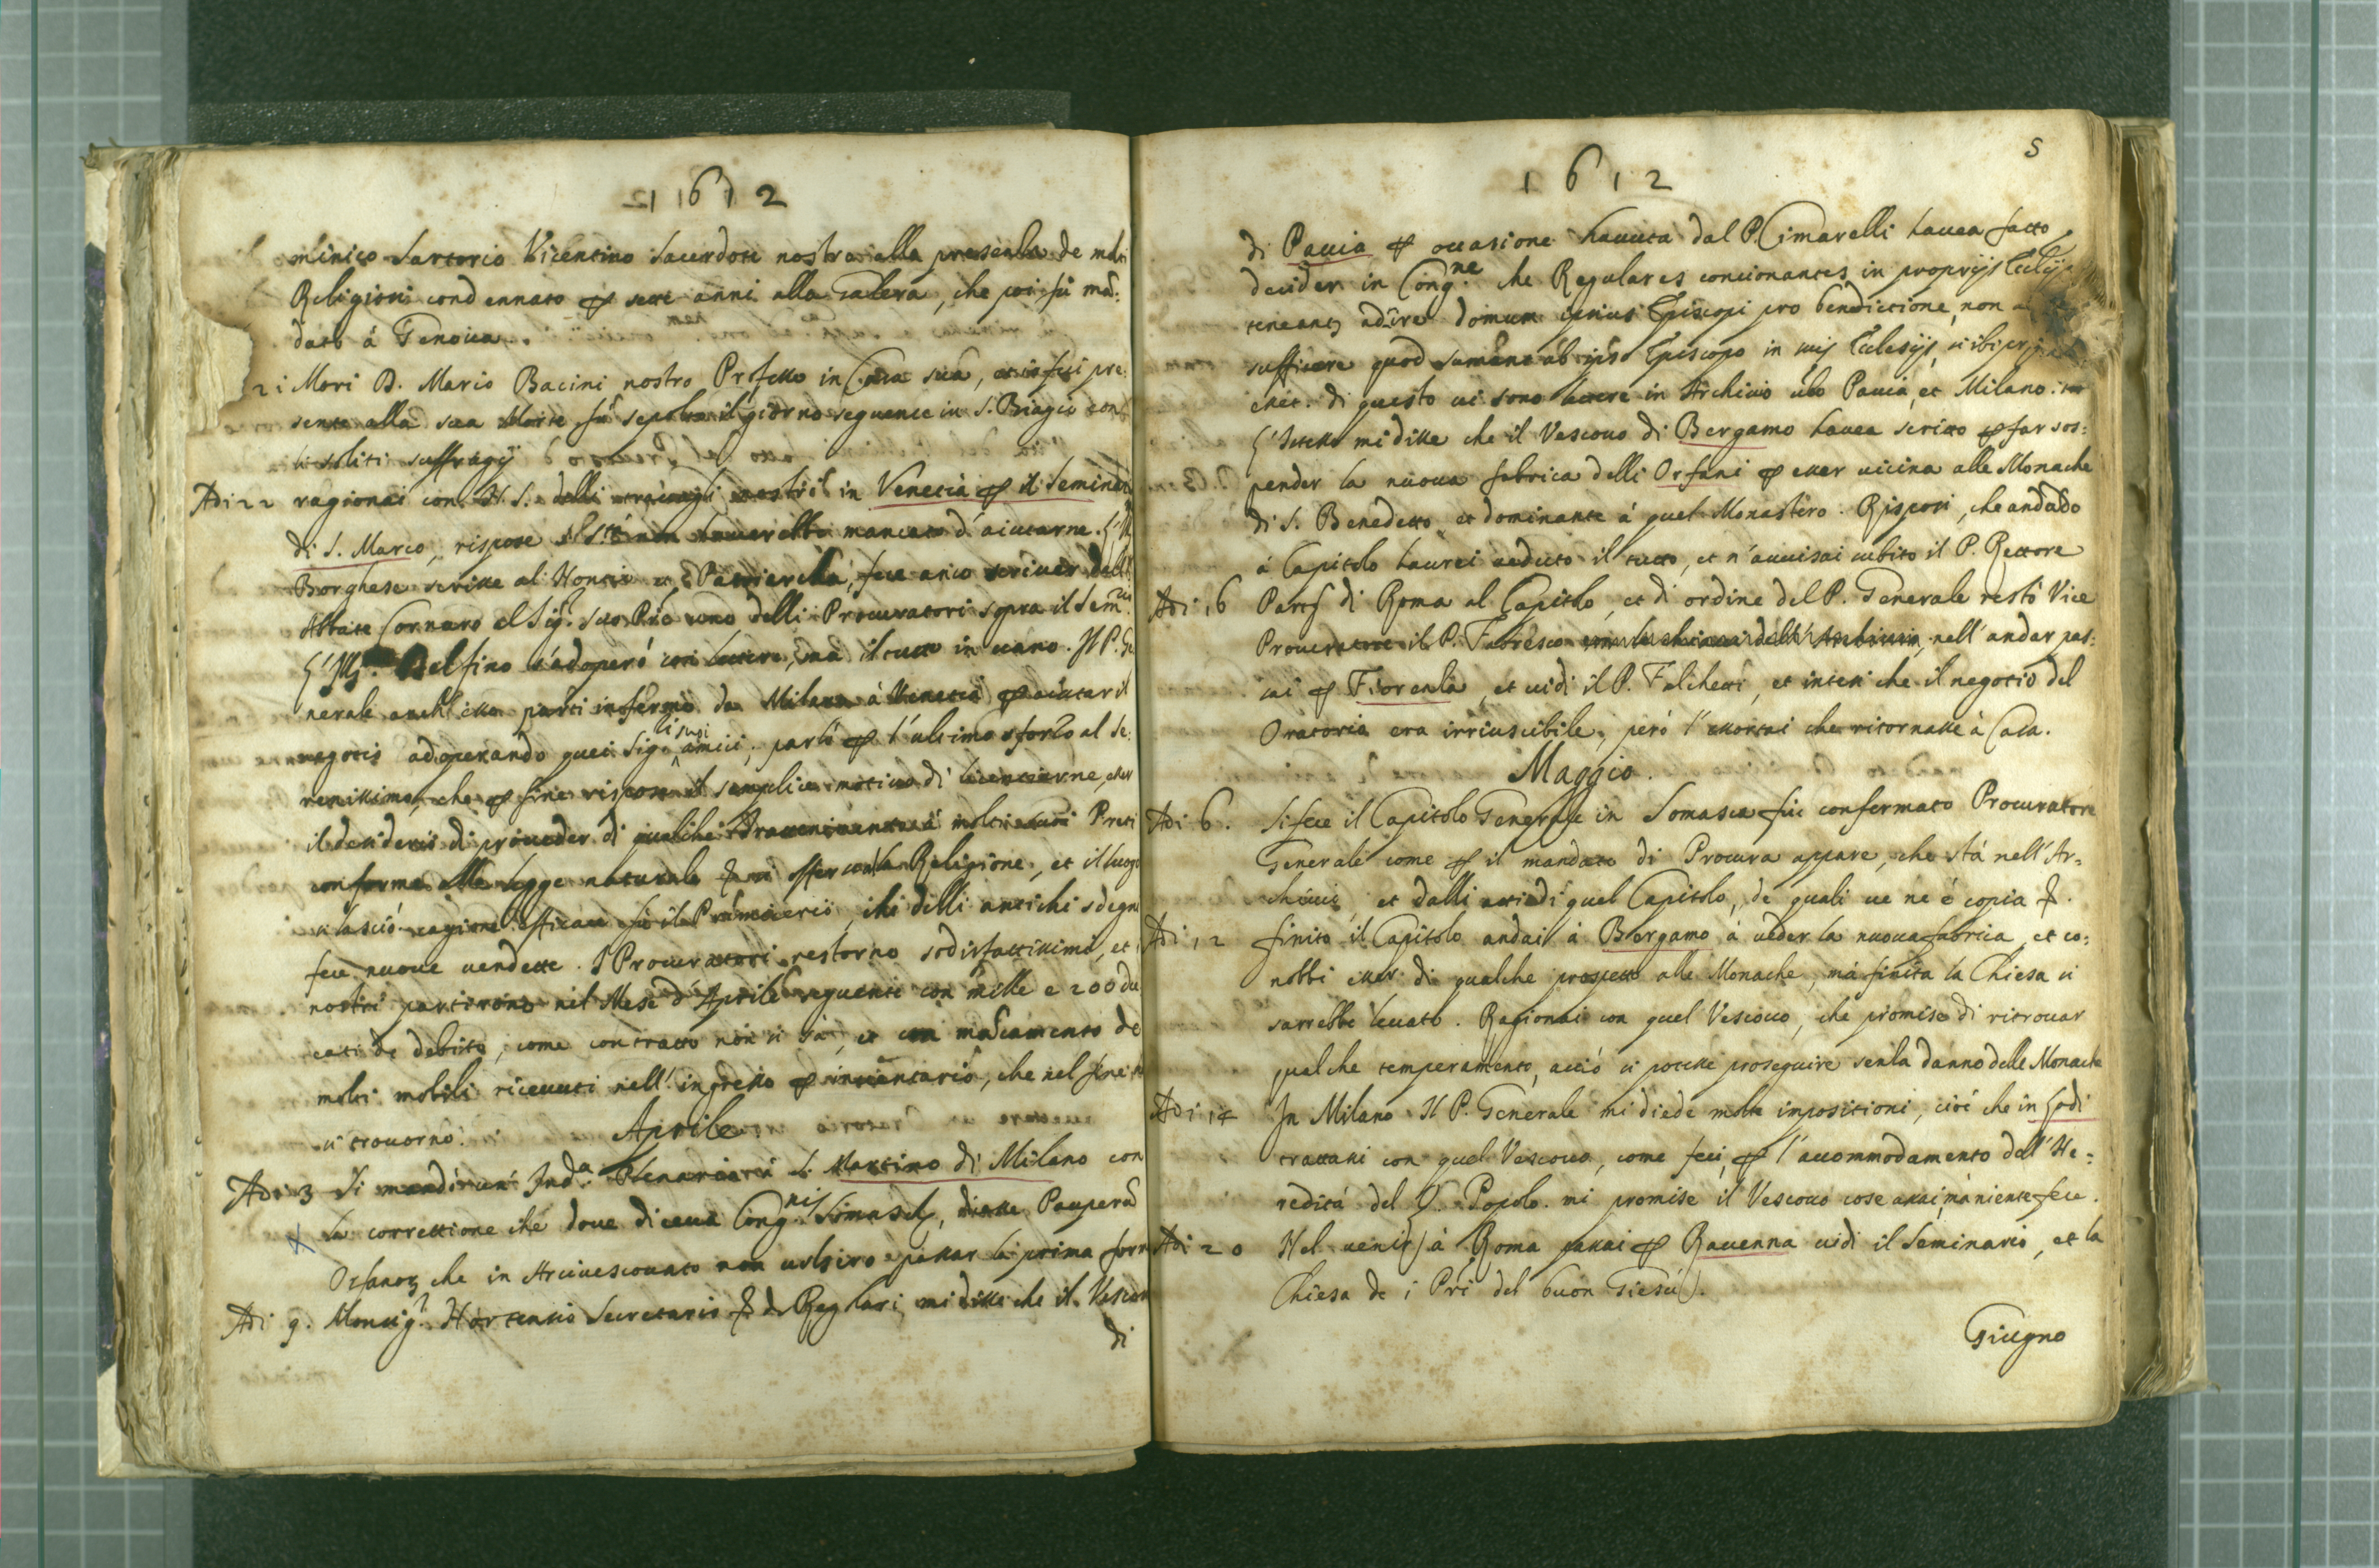 1612
minico Sartorio Vicentino Sacerdote nostro alla presenza de molti
Religiosi condennato per sette anni alla Galera, che poi fù mā:
dato à Genova.
21 Morì D. Mario Bacini nostro Professo in Casa sua, et io fui pre:
sente alla sua Morte, fù sepolto il giorno seguente in S. Biagio con
li soliti suffragij
Adi 22 ragionai con N. S. delli nostri in Venetia per il Semin
di S. Marco, rispose S. Stà non haverebbe mancato d'aiutarne. L'Ill
Borghese scrisse al Nontio et Patriarcha, fece anco scriver dall
Abbate Cornaro al Sig.r suo Prē uno delli Procuratori sopra il Sem.rio
L'Ill. Delfino s'adoperò con lettere, mà il tutto in vano. Il P. Ge
nerale anch'esso partì infermo da Milano à Venetia per aiutar il
negotio adoperando quei Sig.ri li suoi amici, parlò per l'ultimo sforzo al Se:
renissimo, che per fine rispose il semplice motivo di licentiarne, esser
il desiderio di proveder di qualche trattenimento à molti suoi Preti
conforme alla legge naturale di non offender la Religione, et il luogo
si lasciò. cagione efficace fù il Primicerio, che delli antichi sdegni
fece nuove vendette. I Procuratori restorno sodisfattissimi, et i
nostri partirono nel Mese d'Aprile seguente con mille e 200 du
cati de debito, come contratto non si sà, et con mācamento de
molti mobili ricevuti nell'ingresso per inventario, che nel fine no
si trovorno.
Aprile
Adi 3 Si mandò un' Ind.a Plenaria à S. Martino di Milano con
la correttione che dove diceva Cong.nis Somaschę, dicesse Pauperū
Orfanorꝫ che in Arcivescovato non volsero passar la prima form
Adi 9. Monsig.r Hortensio Secretario de Regolari, mi disse che il Vescov
di
5
1612
di Pavia per occasione havuta dal P. Cimarelli havea fatto
decider in Cong.ne che Regulares concionantes in proprijs Ecclijs
teneantꝫ adire domum ipsius Episcopi pro benedictione, non a
sufficere quod sumant ab ipso Episcopo in suis Ecclesijs, si ibi prę
enet. di questo vi sono lettere in Archivio ubo Pavia, et Milano.
L'istesso mi disse che il Vescovo di Bergamo havea scritto per far sos:
pender la nuova fabrica delli Orfani per esser vicina alle Monache
di S. Benedetto, et dominante à quel Monastero. Risposi, che andādo
à Capitolo haurei veduto il tutto, et n'avvisai subito il P. Rettore
Adi 16 Partij di Roma al Capitolo, et di ordine del P. Generale restò Vice
Procuratore il P. Tubresco nell'andar pas:
sai per Fiorenza, et vidi il P. Falchetti, et intesi che il negotio del
Oratorio era irriuscibile, però l'essortai che ritornasse à Casa.
Maggio.
Adi 6. Si fece il Capitolo Generale in Somasca fui confermato Procuratore
Generale come per il mandato di Procura appare, che stà nell'Ar=
chivio, et dalli atti di quel Capitolo, de quali ve ne è copia
Adi 12 finito il Capitolo andai à Bergamo à veder la nuova fabrica, et co:
nobbi esser di qualche prospetto alle Monache, mà finita la Chiesa si
sarebbe levato. Ragionai con quel Vescovo, che promise di ritrovar
qualche temperamento, acciò si potesse proseguire senza danno delle Monache
Adi 14 In Milano Il P. Generale mi diede molte impositioni, cioè che in Lodi
trattassi con quel Vescovo, come feci, per l'accommodamento dell'He=
redità del Q. Popolo. mi promise il Vescovo cose assai, mà niente fece.
Adi 20 Nel venir à Roma passai per Ravenna vidi il Seminario, et la
Chiesa de i Prī del buon Giesù.
Giugno